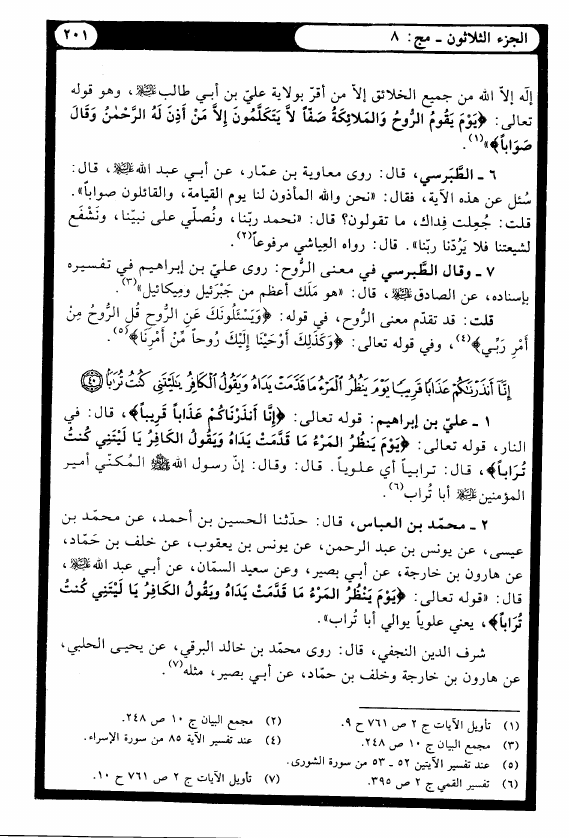 الجزء الثلاثون ـ مج: ٨
٢٠١
إله إلاّ الله من جميع الخلائق إلاّ من أقرّ بولاية عليّ بن أبي طالب عليه السلام، وهو قوله
تعالى: ﴿يَوْمَ يَقُومُ الرُّوحُ وَالمَلائِكَةُ صَفّاً لاَّ يَتَكَلَّمُونَ إِلاَّ مَنْ أَذِنَ لَهُ الرَّحْمَنُ وَقَالَ
صَوَاباً﴾»(١).
٦ ـ الطَّبَرسي، قال: روى معاوية بن عمار، عن أبي عبد الله عليه السلام، قال:
سُئل عن هذه الآية، فقال: «نحن والله المأذون لنا يوم القيامة، والقائلون صواباً».
قلت: جُعلت فِداك، ما تقولون؟ قال: «نحمد ربّنا، ونُصلّي على نبيّنا، ونَشْفَع
لشيعتنا فلا يَرُدّنا ربّنا». قال: رواه العِياشي مرفوعاً(٢).
٧ ـ وقال الطَّبرسي في معنى الرُّوح: روى عليّ بن إبراهيم في تفسيره
بإسناده، عن الصادق عليه السلام، قال: «هو مَلَك أعظم من جَبْرَئيل ومِيكائيل»(٣).
قلت: قد تقدّم معنى الرُّوح، في قوله: ﴿وَيَسْئَلُونَكَ عَنِ الرُّوحِ قُلِ الرُّوحُ مِنْ
أَمْرِ رَبِّي﴾(٤)، وفي قوله تعالى: ﴿وَكَذَلِكَ أَوْحَيْنَا إِلَيْكَ رُوحاً مِّنْ أَمْرِنَا﴾(٥).
إِنَّا أَنذَرْنَاكُمْ عَذَابًا قَرِيبًا يَوْمَ يَنظُرُ الْمَرْءُ مَا قَدَّمَتْ يَدَاهُ وَيَقُولُ الْكَافِرُ يَا لَيْتَنِي كُنتُ تُرَابًا ٤٠
١ ـ عليّ بن إبراهيم: قوله تعالى: ﴿إِنَّا أَنذَرْنَاكُمْ عَذَاباً قَرِيباً﴾، قال: في
النار، قوله تعالى: ﴿يَوْمَ يَنظُرُ المَرْءُ مَا قَدَّمَتْ يَدَاهُ وَيَقُولُ الكَافِرُ يَا لَيْتَنِي كُنتُ
تُرَاباً﴾، قال: ترابياً أي علوياً. قال: وقال: إنّ رسول الله صلى الله عليه وآله المُكنّي أمير
المؤمنين عليه السلام أبا تُراب(٦).
٢ ـ محمّد بن العباس، قال: حدّثنا الحسين بن أحمد، عن محمّد بن
عيسى، عن يونس بن عبد الرحمن، عن يونس بن يعقوب، عن خلف بن حَمّاد،
عن هارون بن خارجة، عن أبي بصير، وعن سعيد السمّان، عن أبي عبد الله عليه السلام،
قال: «قوله تعالى: ﴿يَوْمَ يَنظُرُ المَرْءُ مَا قَدَّمَتْ يَدَاهُ ويَقُولُ الكَافِرُ يَا لَيْتَنِي كُنتُ
تُرَاباً﴾، يعني علوياً يوالي أبا تُراب».
شرف الدين النجفي، قال: روى محمّد بن خالد البرقي، عن يحيى الحلبي،
عن هارون بن خارجة وخلف بن حمّاد، عن أبي بصير، مثله(٧).
(١) تأويل الآيات ج ٢ ص ٧٦١ ح ٩.
(٢) مجمع البيان ج ١٠ ص ٢٤٨.
(٣) مجمع البيان ج ١٠ ص ٢٤٨.
(٤) عند تفسير الآية ٨٥ من سورة الإسراء.
(٥) عند تفسير الآيتين ٥٢ ـ ٥٣ من سورة الشورى.
(٦) تفسير القمي ج ٢ ص ٣٩٥.
(٧) تأويل الآيات ج ٢ ص ٧٦١ ح ١٠.